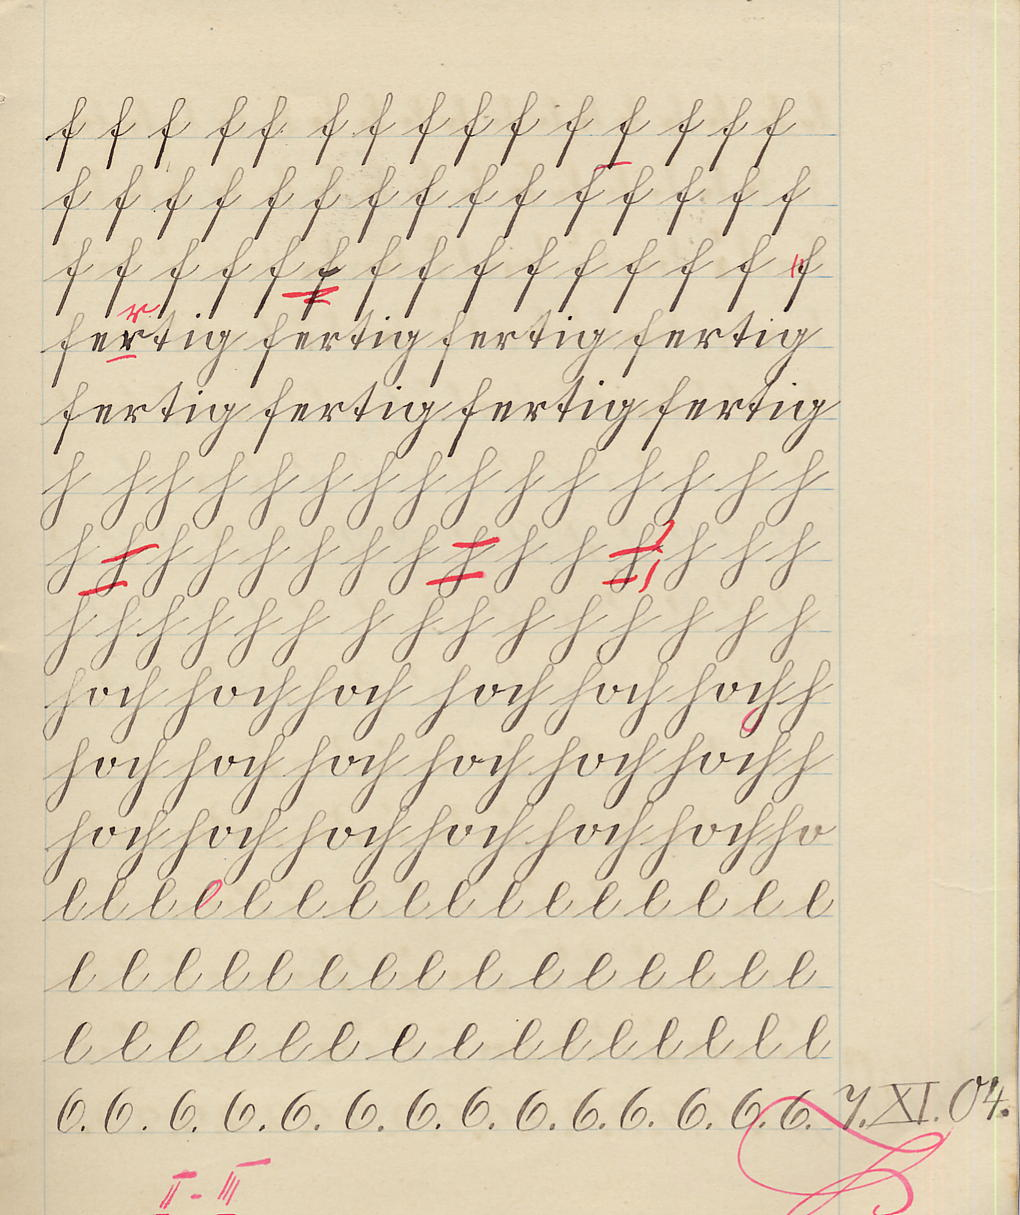 f f f f f f f f f f f f f f f
f f f f f f f f f f f f f f f
f f f f f f f f f f f f f f f
r
fertig fertig fertig fertig
fertig fertig fertig fertig
h h h h h h h h h h h h h h h
h h h h h h h h h h h h h h h
h h h h h h h h h h h h h h h
hoch hoch hoch hoch hoch hoch h
hoch hoch hoch hoch hoch hoch h
hoch hoch hoch hoch hoch hoch ho
l l l l l l l l l l l l l l l l
l l l l l l l l l l l l l l l
l l l l l l l l l l l l l l l
6. 6. 6. 6. 6. 6. 6. 6. 6. 6. 6. 6. 6. 6. 7. XI. 04.
II - III